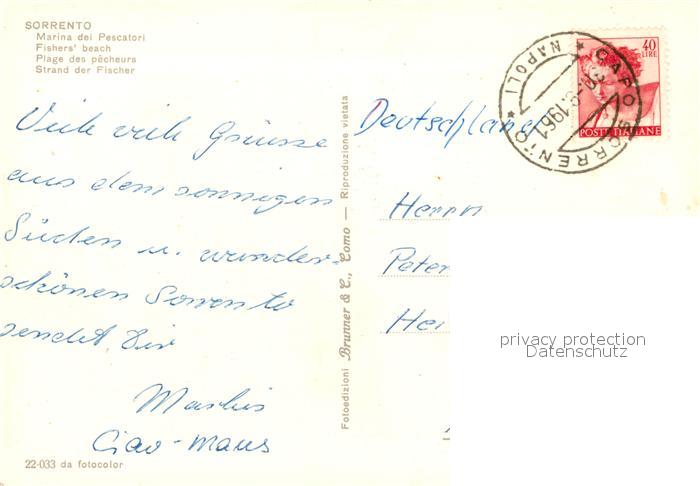 SORRENTO
Marina dei Pescatori
Fishers' beach
Plage des pêcheurs
Strand der Fischer
Viele viele Grüsse
aus dem sonnigen
Süden u. wunder-
schönen Sorrento
sendet Dir
Ciao-Maus
22-033 da fotocolor
Fotoedizioni Brunner & C., Como — Riproduzione vietata
40
LIRE
POSTE ITALIANE
CAPO SORRENTO
* NAPOLI *
1961
Deutschland
Herrn
Peter
Hei
privacy protection
Datenschutz